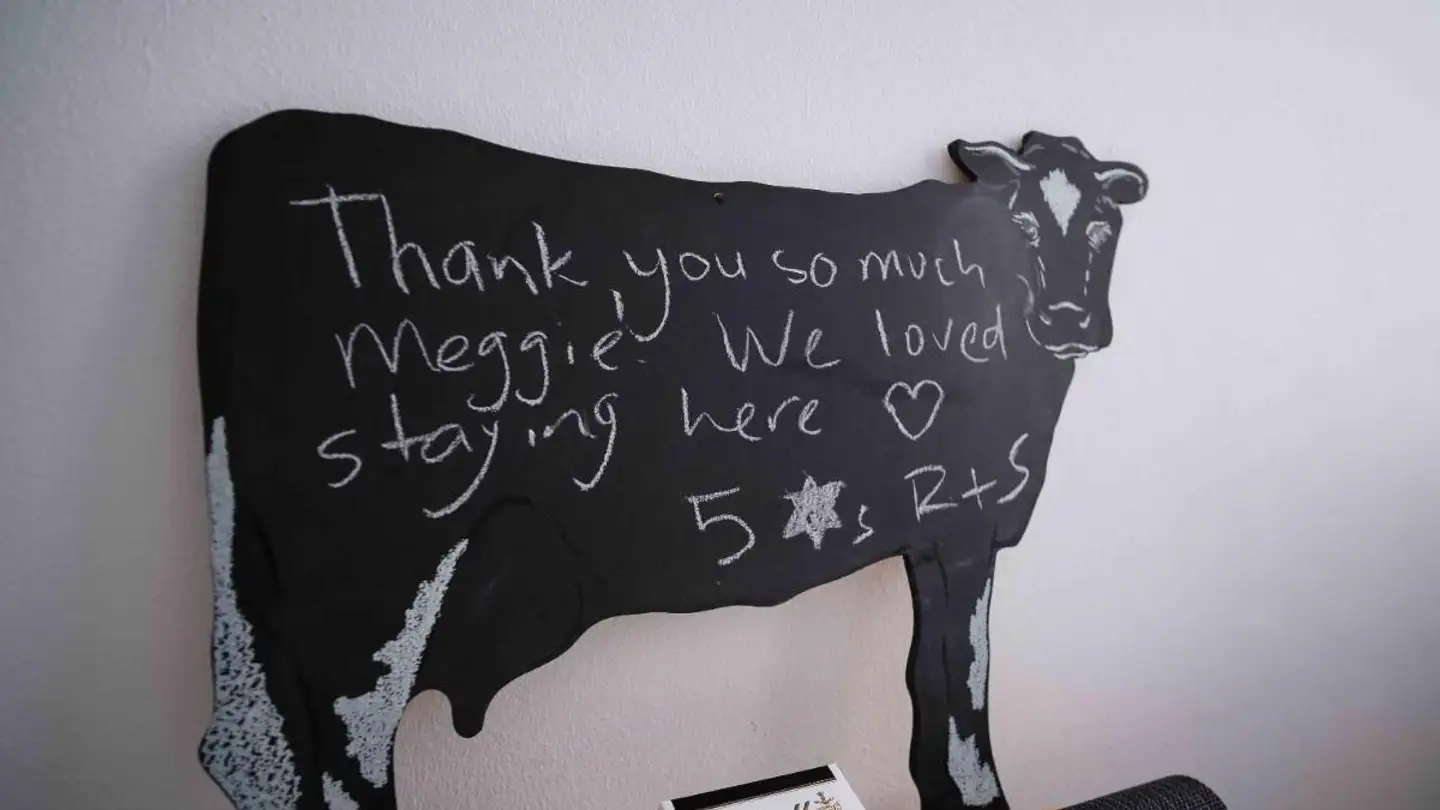 Thank you so much
Meggie! We loved
staying here ♡
5 ★s R+S